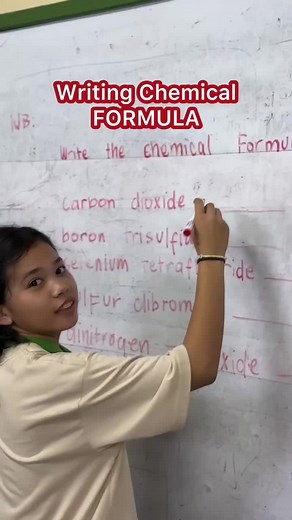 Writing Chemical
FORMULA
NB.
Write the chemical Formul
carbon dioxide
boron Trisulfid
Tetraf ride
lfur dibrom
dinitrogen xide